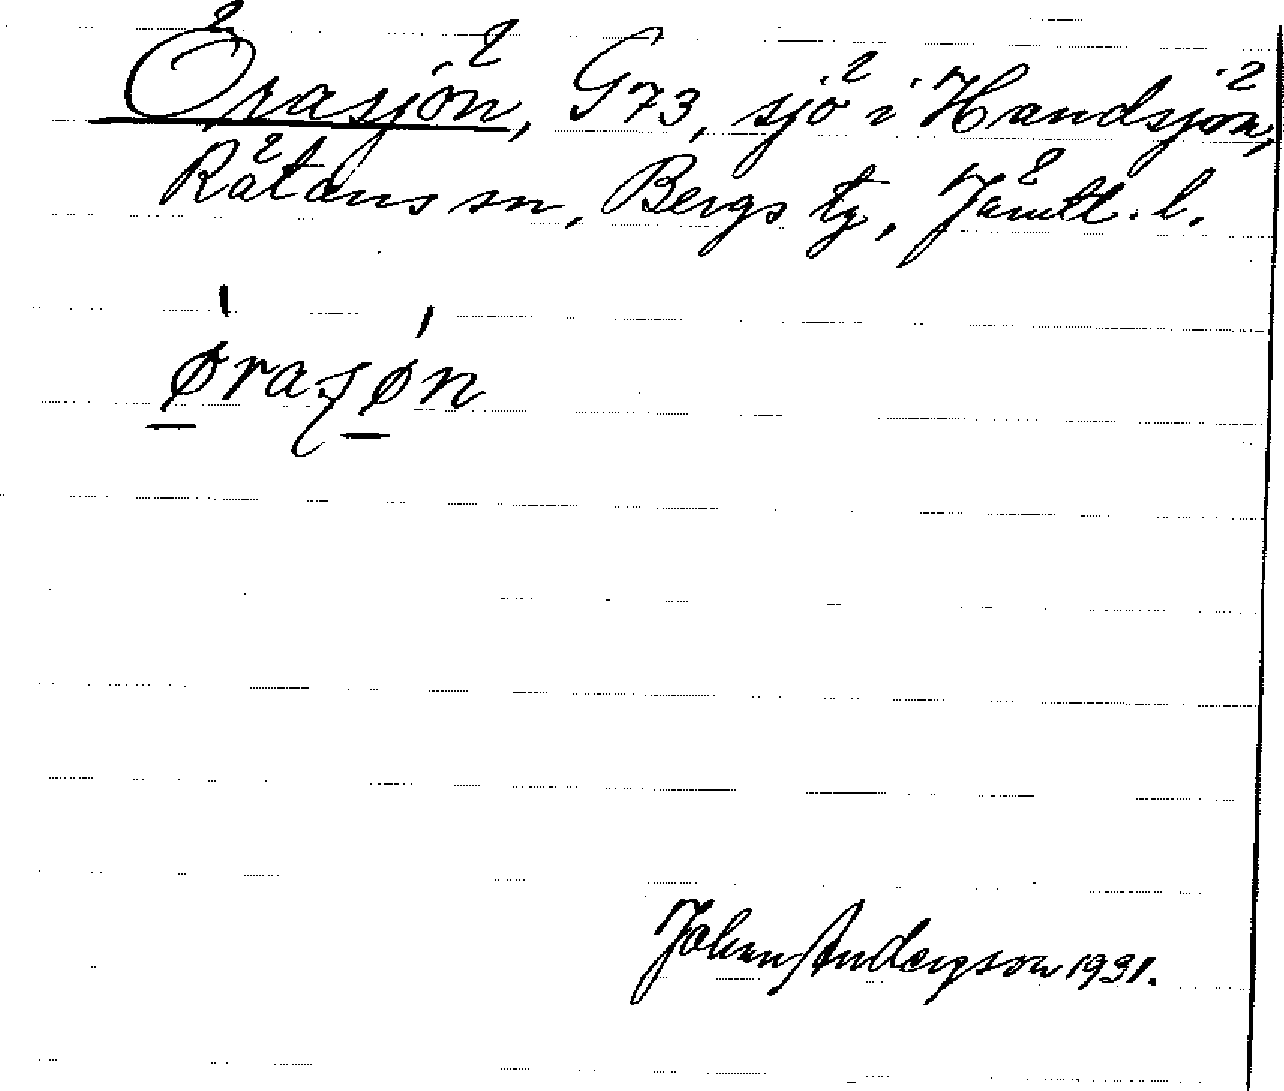 Örasjön, G73, sjö i Handsjön,
Rätans sn, Bergs tg, Jämtl. l.
ørasøn
Johan Anderson 1931.